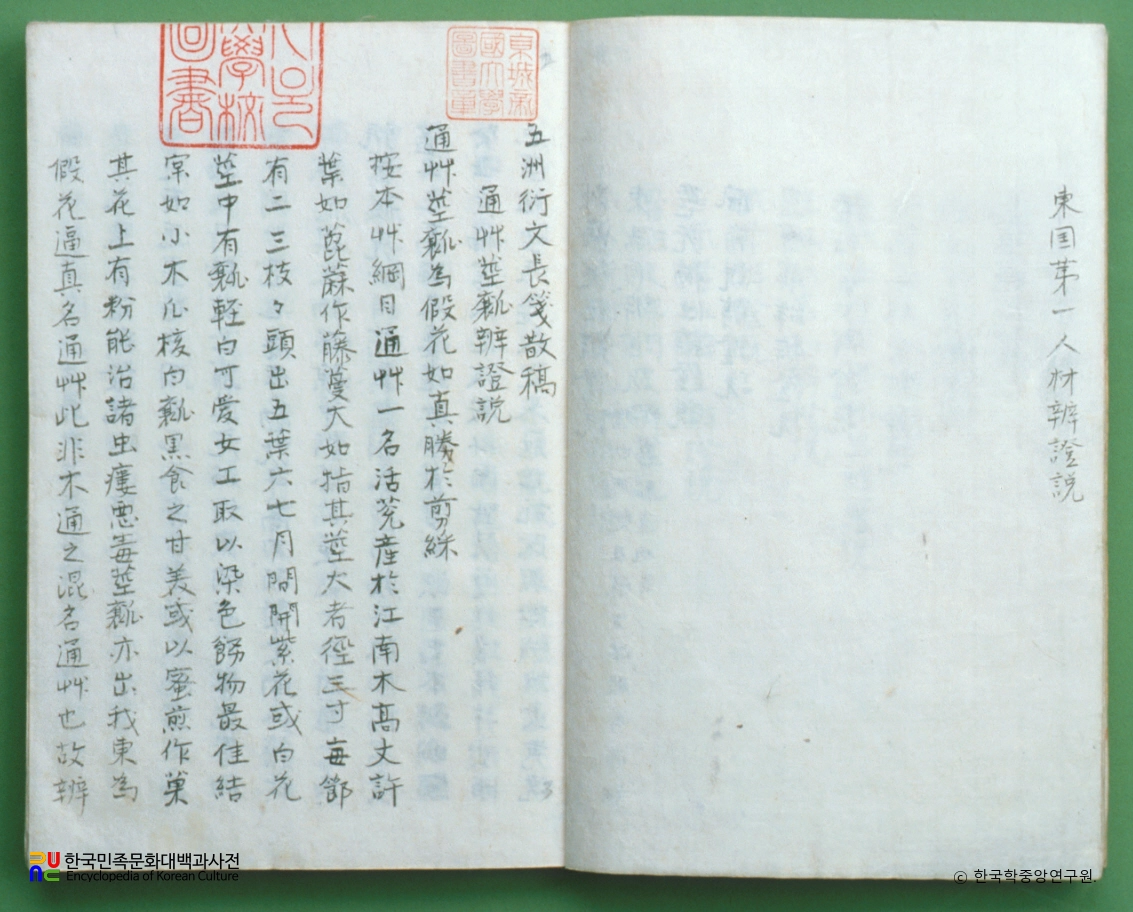 東国苐一人材辨證説
五洲衍文長箋散稿
通艸莖瓤辨證説
通艸莖瓤為假花如真勝於剪綵
按本艸綱目通艸一名活莌產於江南木高丈許
葉如蓖蔴作藤蔓大如指其莖大者徑三寸每節
有二三枝々頭出五葉六七月間開紫花或白花
莖中有瓤輕白可愛女工取以染色餙物最佳結
实如小木瓜核白瓤黑食之甘美或以蜜煎作菓
其花上有粉能治諸虫瘻悪毒莖瓤亦出我東為
假花逼真名通艸此非木通之混名通艸也故辨
京城帝
國大學
圖書章
學校
圖書
한국민족문화대백과사전
Encyclopedia of Korean Culture
© 한국학중앙연구원.